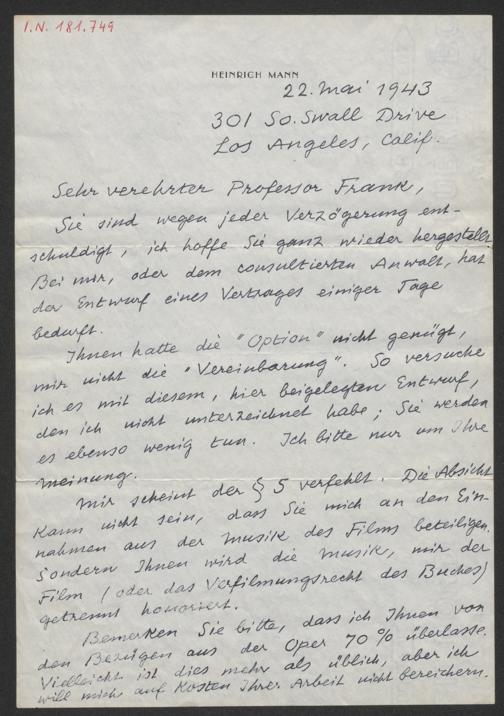 I.N. 181.749
HEINRICH MANN
22. Mai 1943
301 So. Swall Drive
Los Angeles, Calif.
Sehr verehrter Professor Frank,
Sie sind wegen jeder Verzögerung ent-
schuldigt, ich hoffe Sie ganz wieder hergestellt.
Bei mir, oder dem consultierten Anwalt, hat
der Entwurf eines Vertrages einiger Tage
bedurft.
Ihnen hatte die "Option" nicht genügt,
mir nicht die "Vereinbarung". So versuche
ich es mit diesem, hier beigelegten Entwurf,
den ich nicht unterzeichnet habe; Sie werden
es ebenso wenig tun. Ich bitte nur um Ihre
Meinung.
Mir scheint der § 5 verfehlt. Die Absicht
kann nicht sein, dass Sie mich an den Ein-
nahmen aus der Musik des Films beteiligen.
Sondern Ihnen wird die Musik, mir der
Film (oder das Verfilmungsrecht des Buches)
getrennt honoriert.
Bemerken Sie bitte, dass ich Ihnen von
den Bezügen aus der Oper 70 % überlasse.
Vielleicht ist dies mehr als üblich, aber ich
will mich auf Kosten Ihrer Arbeit nicht bereichern.